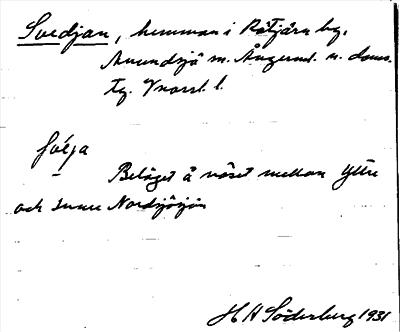 Svedjan, hemman i Rötjärn by,
Anundsjö sn. Ångerml. n. doms.
tg. Vnorrl. l.
svéja
Beläget å näset mellan Yttre
och Inre Nordsjösjön
H H Söderberg 1931